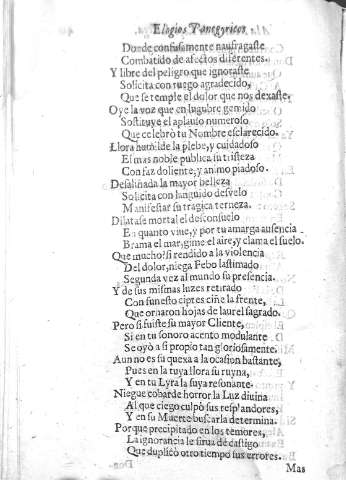 Elogios Panegyricos
Donde confusamente naufragaste
Combatido de afectos diferentes.
Y libre del peligro que ignoraste
Solicita con ruego agradecido,
Que se temple el dolor que nos dexaste,
Oye la voz que en lugubre gemido
Sostituye el aplauso numeroso
Que celebrò tu Nombre esclarecido.
Llora humilde la plebe, y cuidadoso
El mas noble publica su tristeza
Con faz doliente, y animo piadoso.
Desaliñada la mayor belleza
Solicita con languido desvelo
Manifestar su tragica terneza.
Dilatase mortal el desconsuelo
En quanto viue, y por tu amarga ausencia
Brama el mar, gime el aire, y clama el suelo.
Que mucho? si rendido a la violencia
Del dolor, niega Febo lastimado
Segunda vez al mundo su presencia.
Y de sus mismas luzes retirado
Con funesto cipres ciñe la frente,
Que ornaron hojas de laurel sagrado.
Pero si fuiste su mayor Cliente,
Si en tu sonoro acento modulante
Se oyò a si propio tan gloriosamente.
Aun no es su quexa a la ocasion bastante,
Pues en la tuya llora su ruyna,
Y en tu Lyra la suya resonante.
Niegue cobarde horror la Luz diuina
Al que ciego culpò sus resplandores,
Y en su Muerte buscarla determina.
Porque precipitado en los temores,
La ignorancia le sirua de castigo
Que duplicò otro tiempo sus errores.
Mas